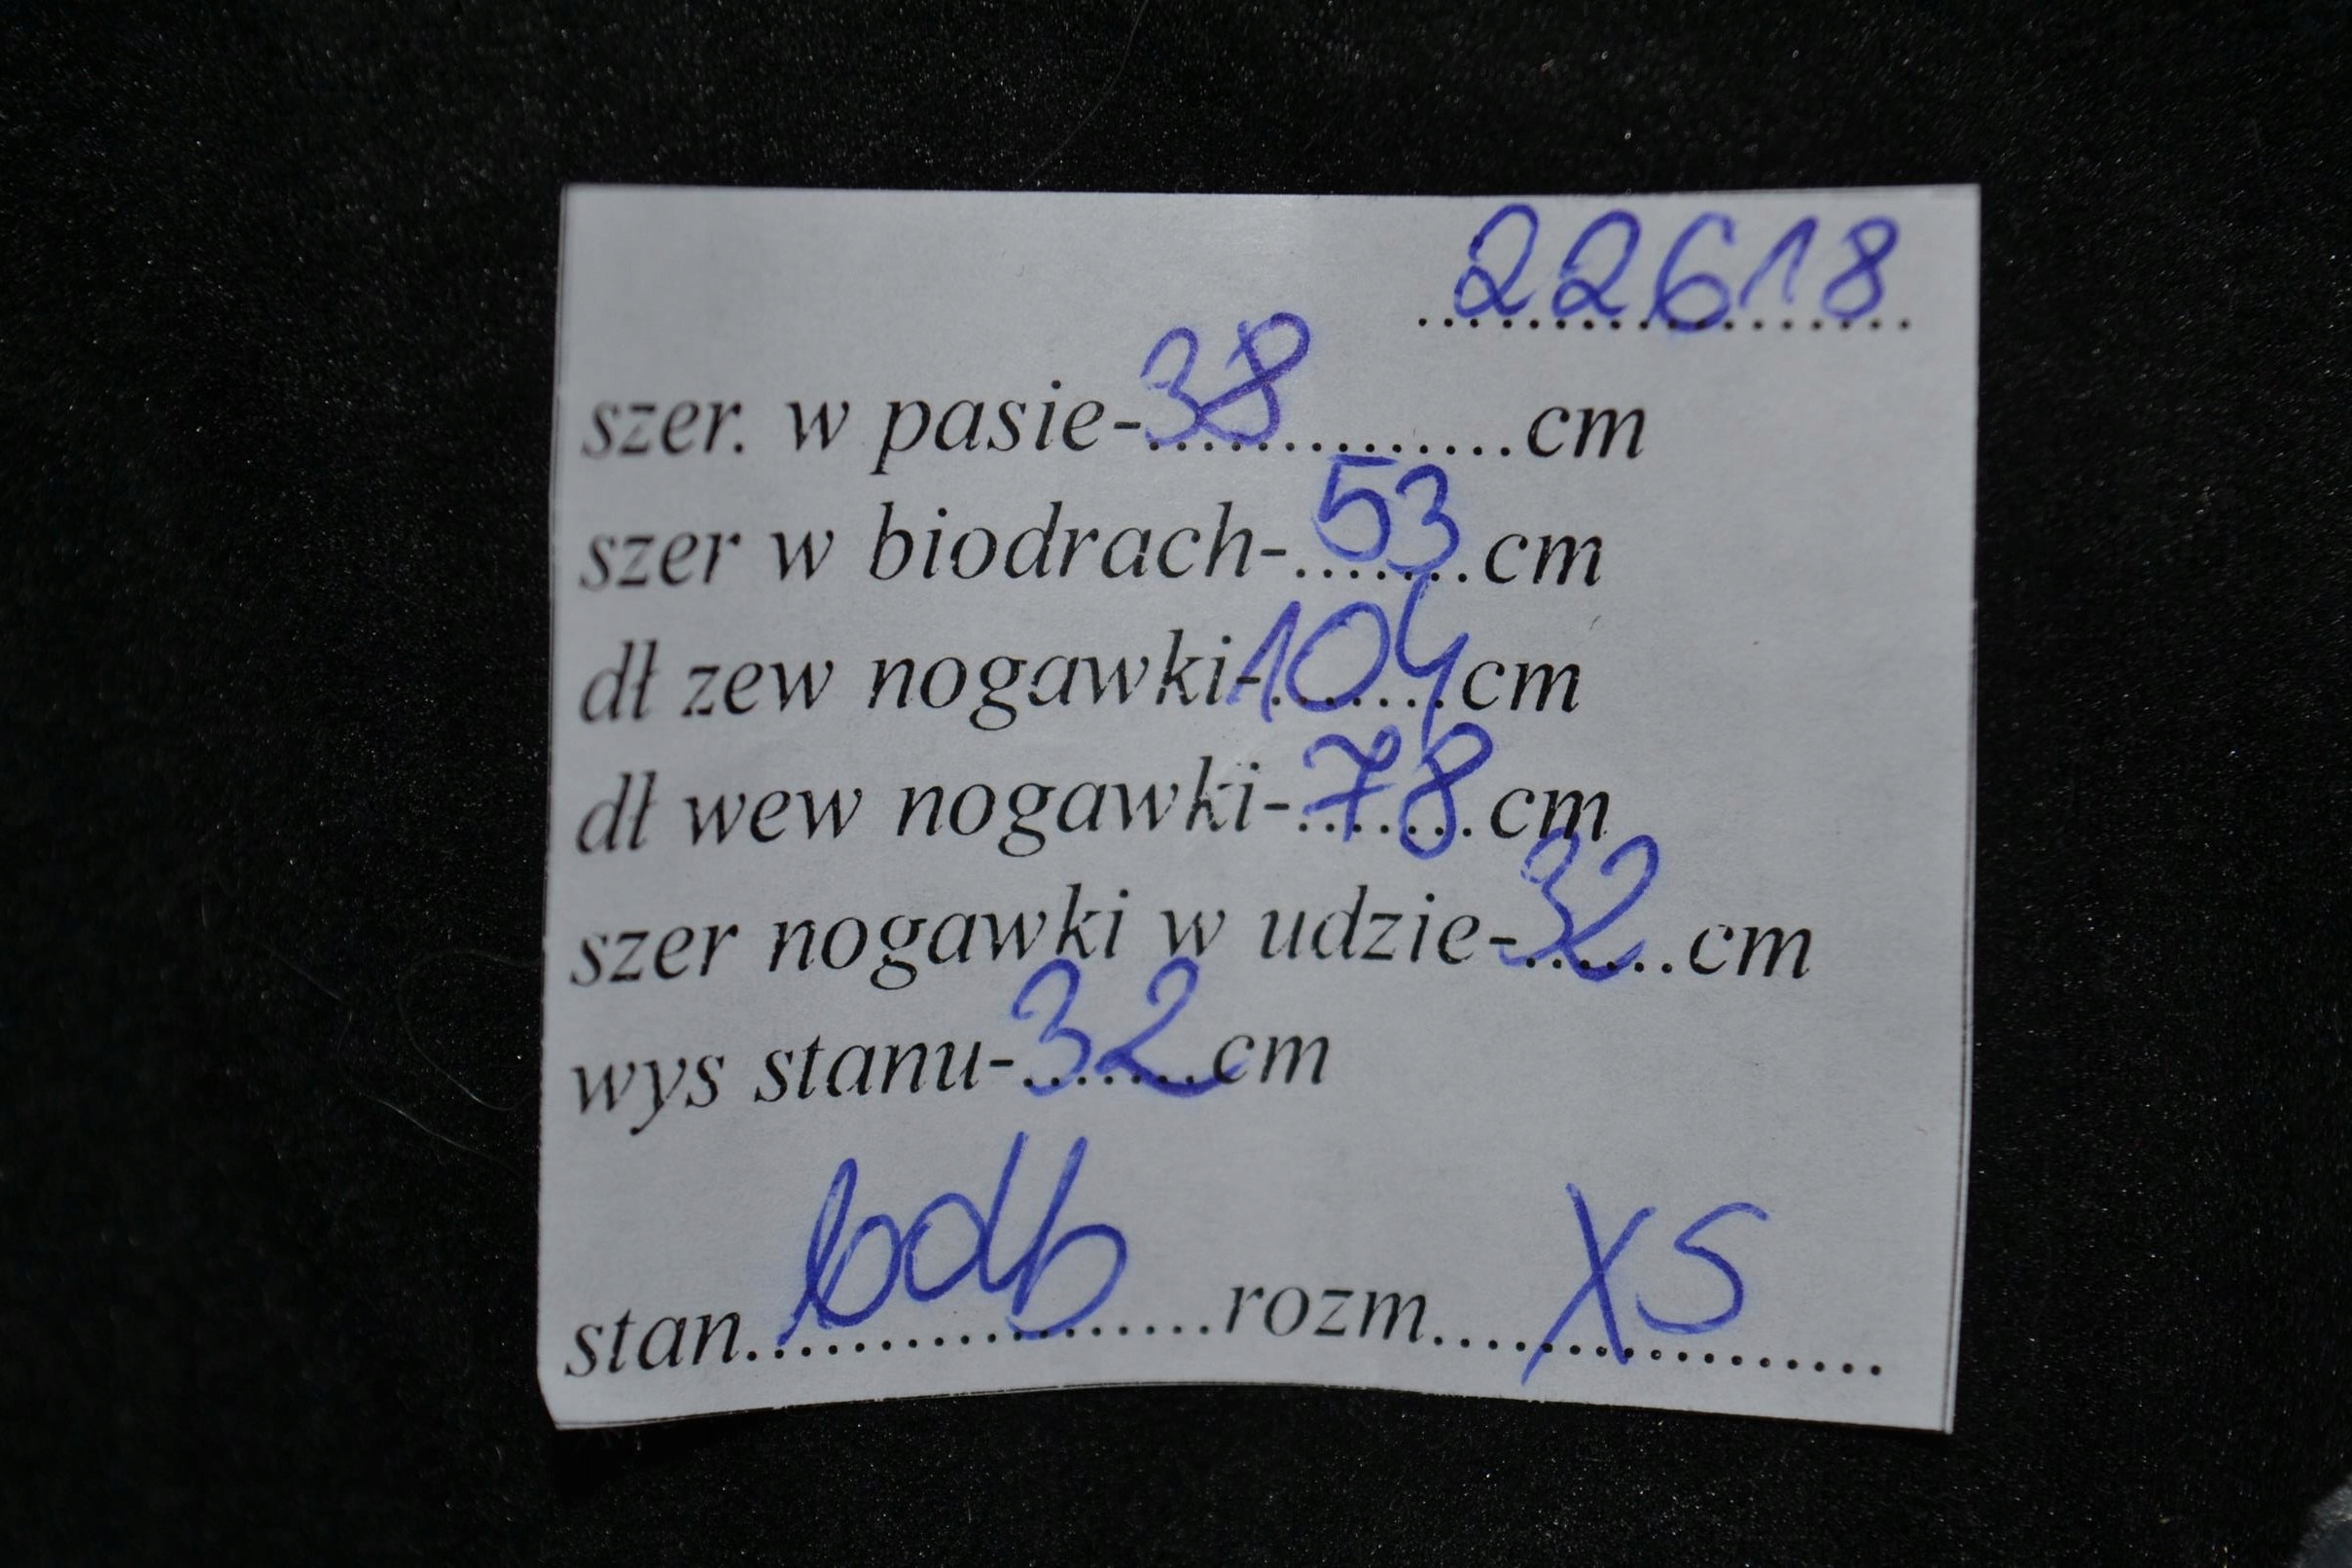 22618
szer. w pasie-38..............cm
szer w biodrach-.53.cm
dł zew nogawki-104cm
dł wew nogawki-.78.cm
szer nogawki w udzie-32...cm
wys stanu-.32cm
stan..bdb.....rozm....XS.......